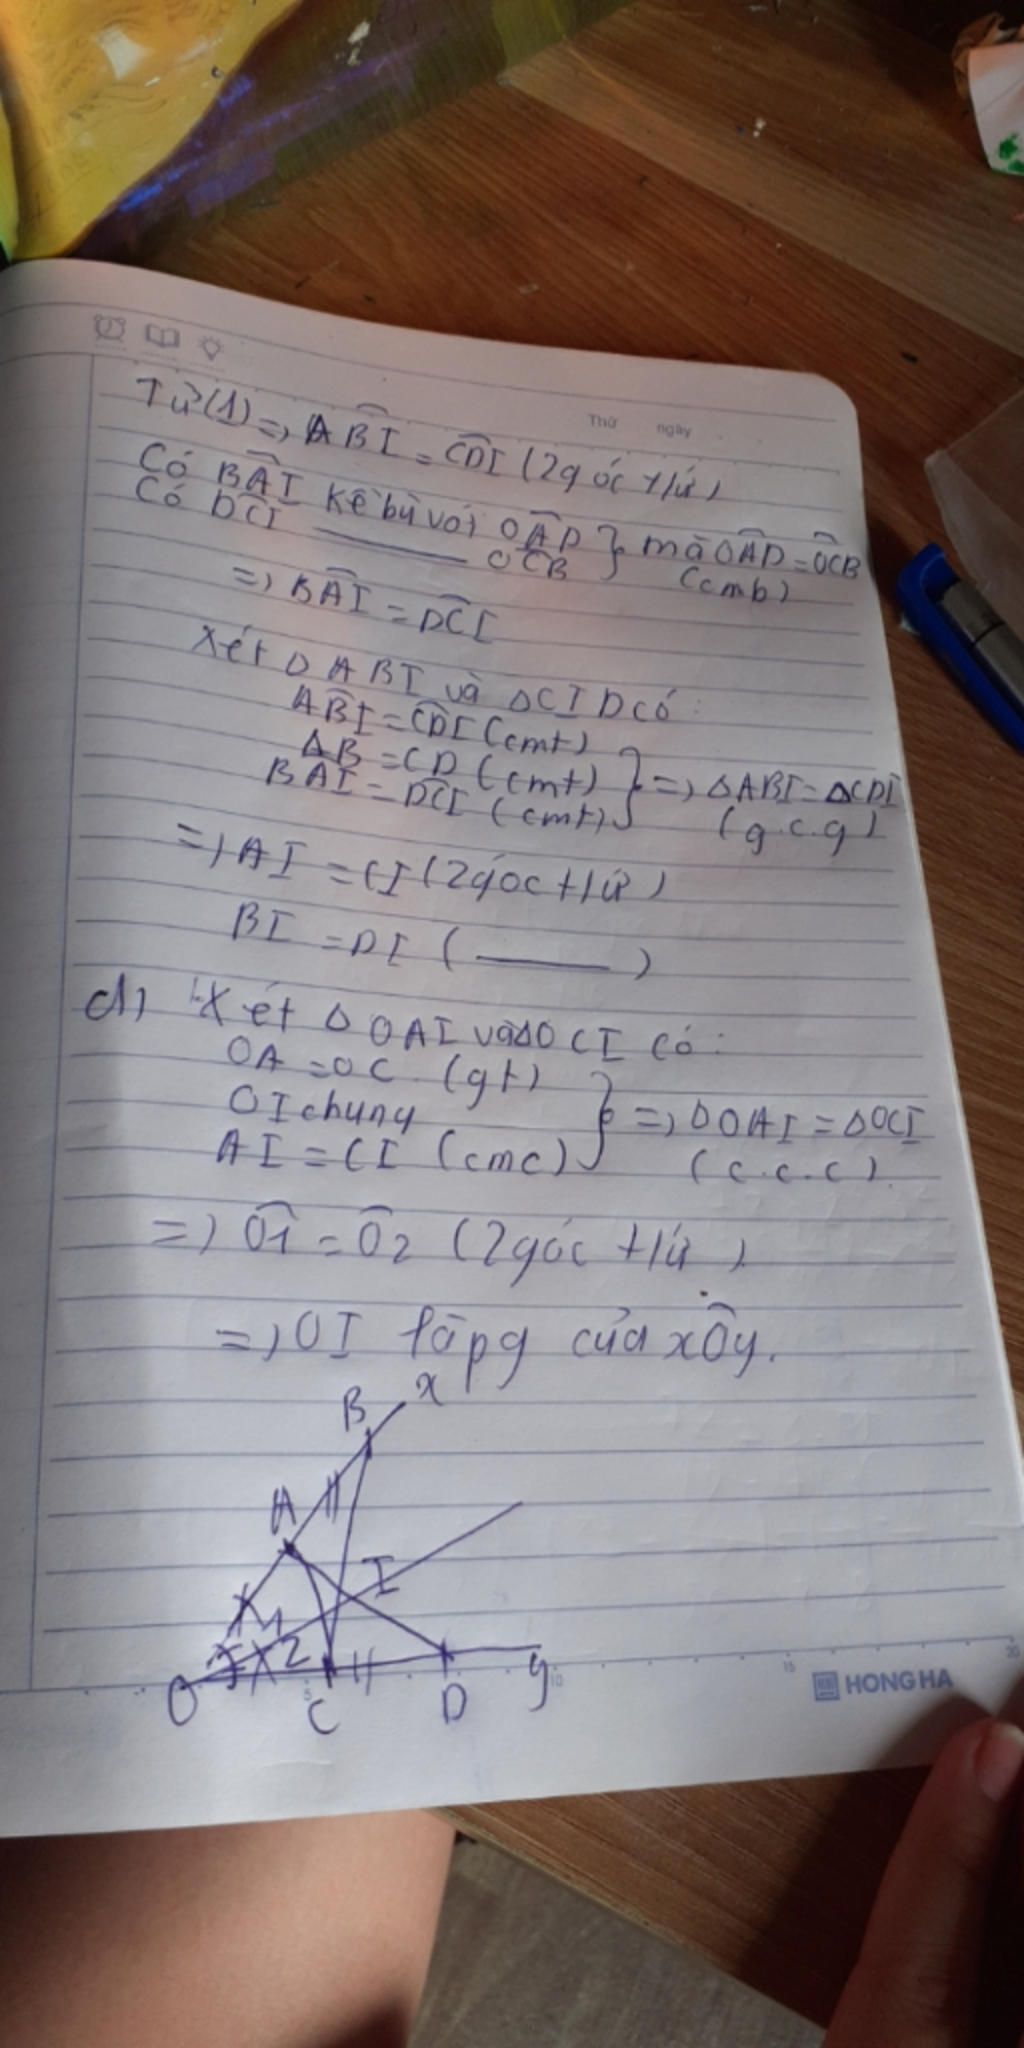 Thứ ngày
Từ (1) => ABI = CDI (2 góc t/ứ)
Có BAI kề bù với OAD } mà OAD = OCB
Có DCI ——— OCB (cmb)
=> BAI = DCI
Xét Δ ABI và ΔCID có:
ABI = CDI (cmt)
AB = CD (cmt) } => ΔABI = ΔCDI
BAI = DCI (cmt) (g.c.g)
=> AI = CI (2 góc t/ứ)
BI = DI ( ——— )
d) Xét Δ OAI và ΔOCI có:
OA = OC (gt)
OI chung } => ΔOAI = ΔOCI
AI = CI (cmc) (c.c.c).
=> O1 = O2 (2 góc t/ứ).
=> OI là pg của xOy.
B x
A
I
1
2
O C D y
5 10 15 20
HONG HA